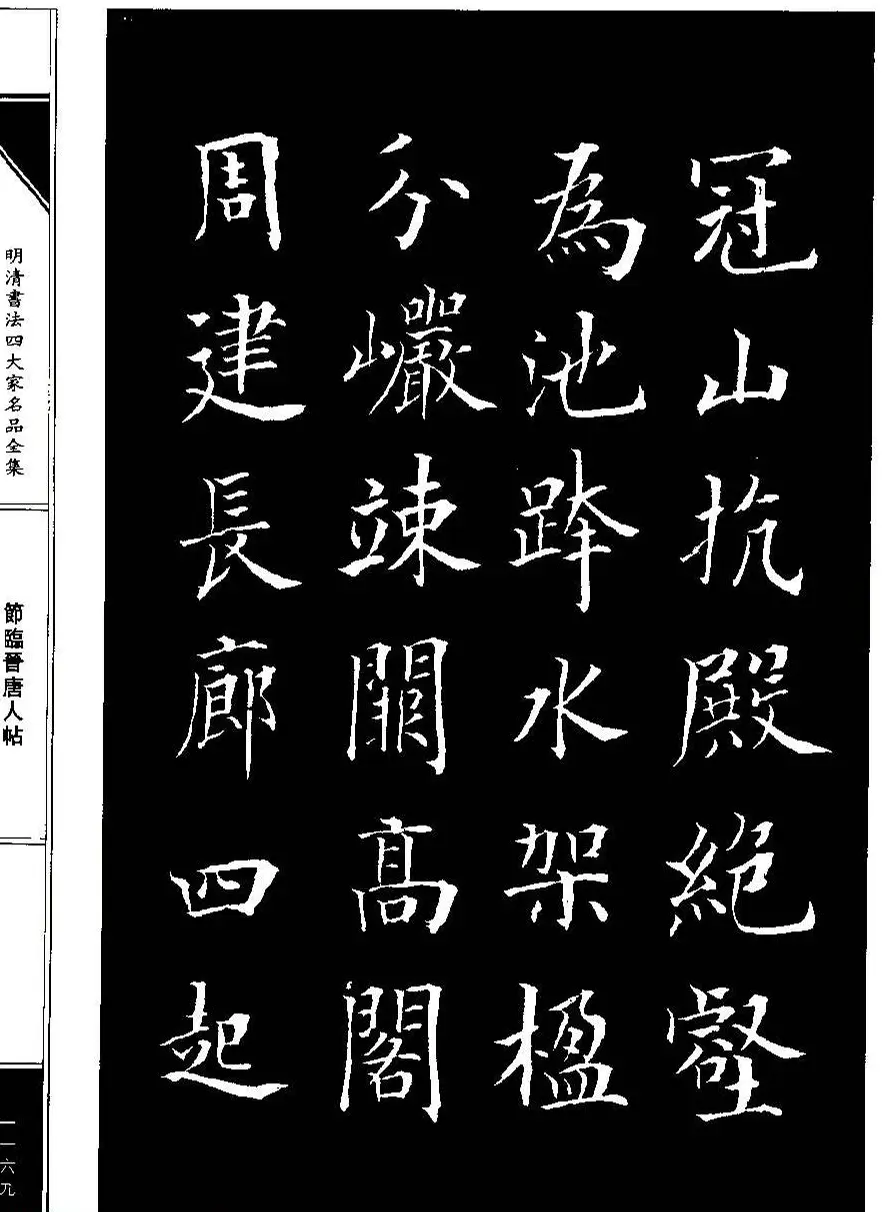 冠山抗殿絕壑
為池跨水架楹
分巗竦闕高閣
周建長廊四起
明清書法四大家名品全集
節臨晉唐人帖
一一六九